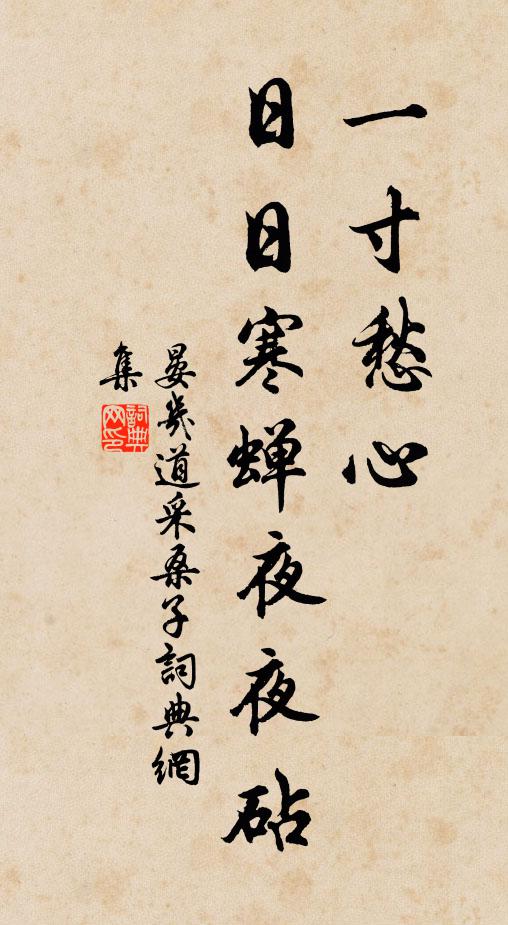 一寸愁心
日日寒蝉夜夜砧
晏幾道采桑子詞典網
集
詞典
网印